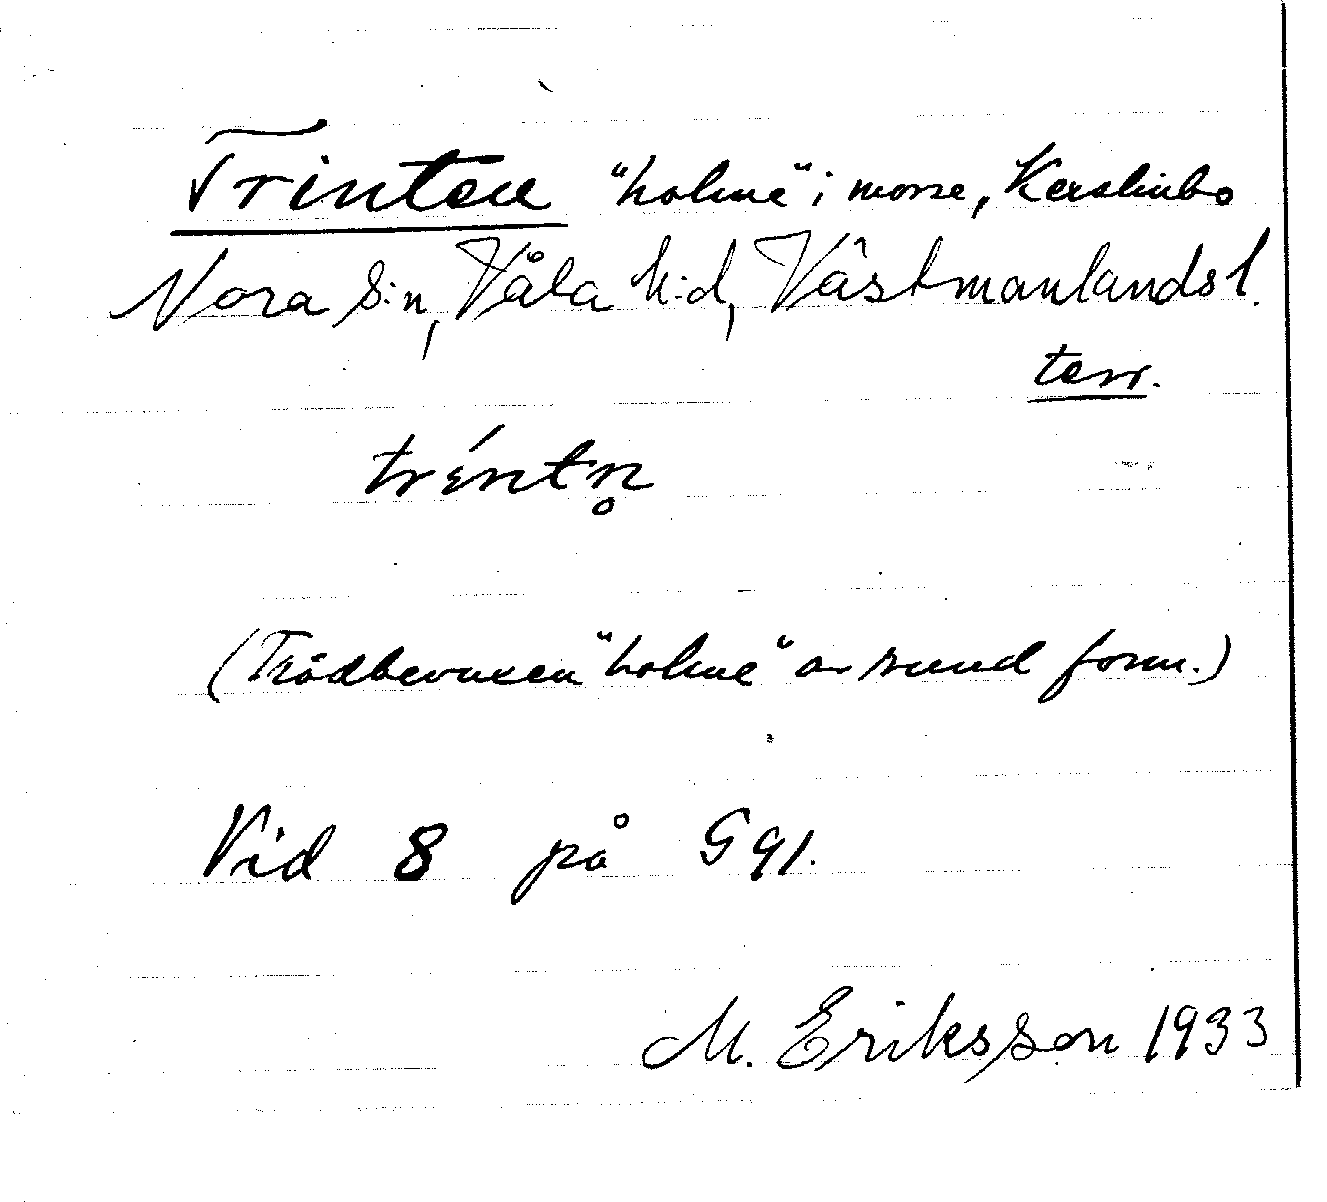 Trinten "holme" i mosse, Kerstinbo
Nora s:n, Våla h:d, Västmanlands l.
terr.
tréntn̥
(Trädbevuxen "holme" av rund form.)
Vid 8 på G 91.
M. Eriksson 1933